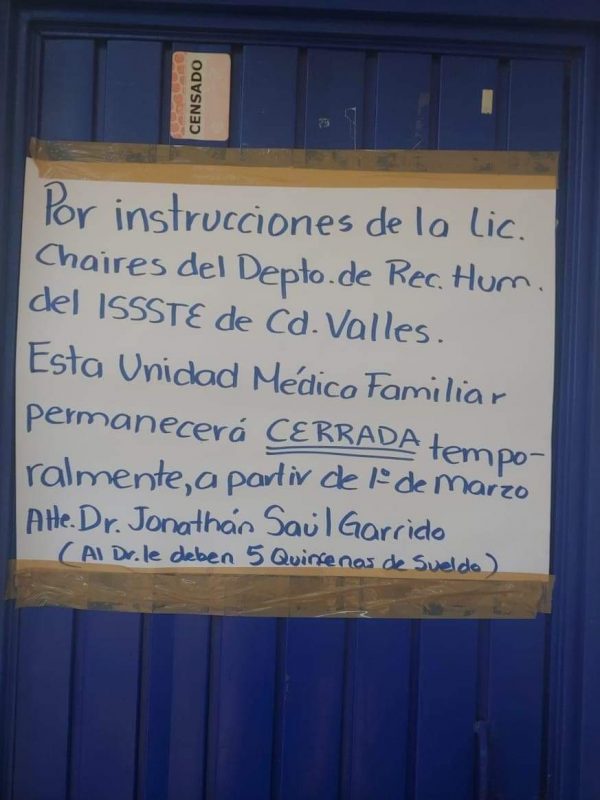 CENSADO
Por instrucciones de la Lic.
Chaires del Depto. de Rec. Hum.
del ISSSTE de Cd. Valles.
Esta Unidad Médico Familiar
permanecerá CERRADA tempo-
ralmente, a partir de 1º de Marzo
Atte. Dr. Jonathán Saúl Garrido
(Al Dr. le deben 5 Quincenas de Sueldo)